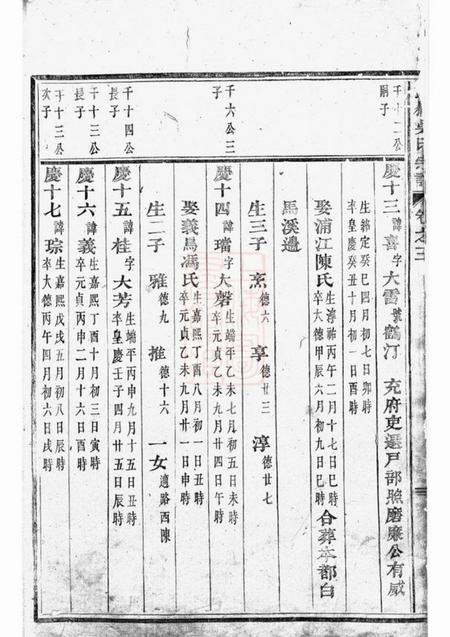 吳氏宗譜
卷之三
千十二公
嗣子
慶十三 諱喜 字大雷 號鶴汀 充府吏選戶部照磨廉公有威
生紹定癸巳四月初七日卯時
卒皇慶癸丑十月初一日酉時
娶浦江陳氏 生淳祐丙午二月十七日巳時
卒大德甲辰六月初九日巳時 合葬本都白
馬溪邊
生三子 烹 德六 享 德廿三 淳 德廿七
千六公三
子
慶十四 諱璿 字大磬 生端平乙未七月初五日未時
卒元貞乙未九月廿四日午時
娶義烏馮氏 生嘉熙丁酉八月初一日丑時
卒元貞乙未九月廿一日申時
生二子 雅 德九 推 德十六 一女 適路西陳
千十四公
長子
慶十五 諱桂 字大芳 生端平丙申九月十五日丑時
卒皇慶壬子四月廿五日辰時
千十三公
長子
慶十六 諱義 生嘉熙丁酉十月初三日寅時
卒元貞丙申二月十六日酉時
千十三公
次子
慶十七 諱琮 生嘉熙戊戌五月初八日辰時
卒大德丙午四月初六日戌時